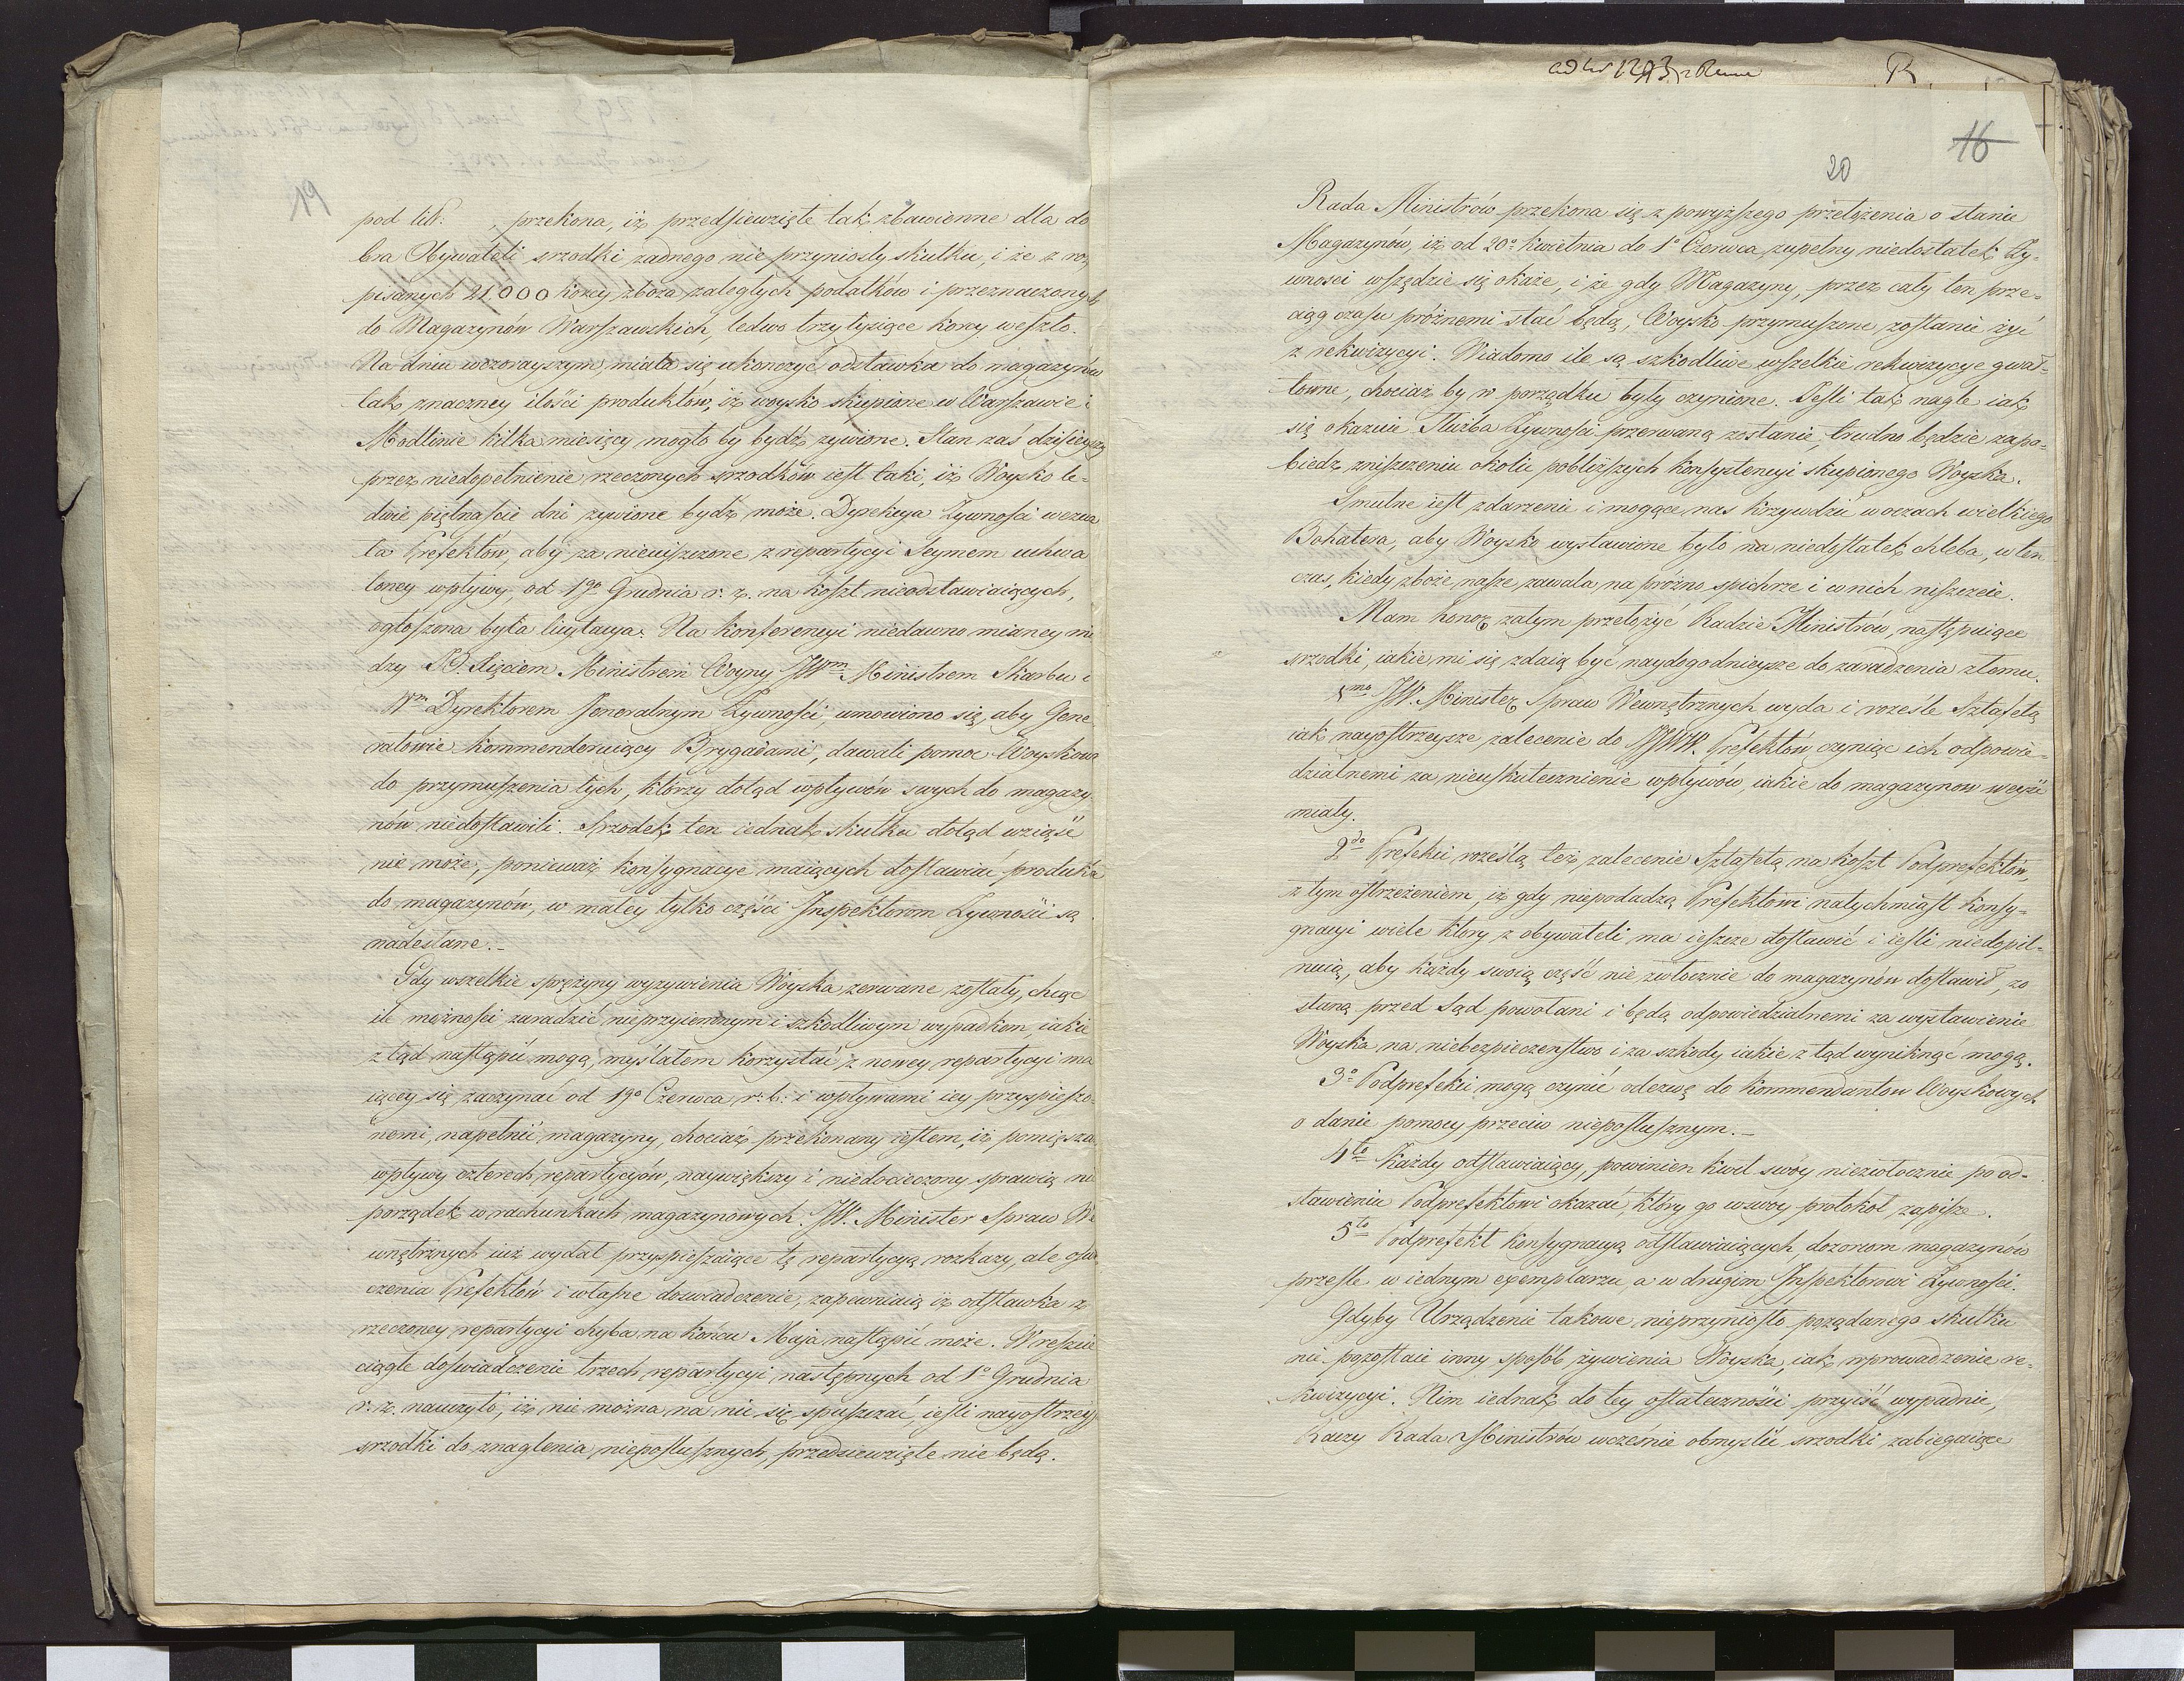 19
pod litt. , przekona, iż przedsiewzięte tak zbawienne dla do
bra Obywateli srzodki żadnego nie przyniosły skutku, i że z roz
pisanych 21.000 korcy zboża zaległych podatków i przeznaczonych
do Magazynów Warszawskich, ledwo trzy tysiące korcy weszło.
Na dniu wczorayszym, miała się ukonczyć odstawka do magazynów
tak znaczney ilości produktów, iż woysko skupione w Warszawie i
Modlinie kilka miesięcy mogło by bydź żywione. Stan zaś dzisieyszy
przez niedopełnienie rzeczonych srzodków iest taki, iż Woysko le-
dwie piętnaście dni żywione bydź może. Dyrekcya Żywności wezwa
ła Prefektów, aby za nieuiszczone z repartycyi Seymem uchwa
loney wpływy, od 1go Grudnia r. z. na koszt nieodstawiaiących,
ogłoszona była licytacya. Na konferencyi niedawno mianey mię
dzy J.O. Xięciem Ministrem Woyny JWm Ministrem Skarbu i
Wm Dyrektorem Jeneralnym Żywności umowiono się, aby Gene
rałowie kommenderuiący Brygadami, dawali pomoc Woyskową
do przymuszenia tych, którzy dotąd wpływów swych do magazy
nów niedostawili. Srzodek ten iednak skutku dotąd wziąść
nie może, ponieważ konsygnacye maiących dostawiać produkta
do magazynów, w małey tylko części Inspektorom Żywności są
nadesłane.-
Gdy wszelkie sprężyny wyżywienia Woyska zerwane zostały, chcąc
ile możności zaradzić nieprzyiemnym i szkodliwym wypadkom iakie
ztąd nastąpić mogą, myślałem korzystać z nowey repartycyi ma
iącey się zaczynać od 1go Czerwca r: b: i wpływami iey przyspieszo
nemi, napełnić magazyny, chociaż przekonany iestem, iż pomięszane
wpływy czterech repartycyów, naywiększy i niedocieczony sprawią nie
porządek w rachunkach magazynowych. JW. Minister Spraw We
wnętrznych iuż wydał przyspieszaiące tę repartycyą rozkazy, ale oswia
czenia Prefektów i własne doswiadczenie, zapewniaią iż odstawka z
rzeczoney repartycyi chyba na końcu Maja nastąpić może. Wreszcie
ciągłe doswiadczenie trzech repartycyi następnych od 1o Grudnia
r. z. nauczyło, iż nie można na nic się spuszczać, iesli nayostrzeysze
srzodki do znaglenia nieposłusznych, przedsiewzięte nie będą.
ad No 1293
R.
16
20
Rada Ministrów przekona się z powyższego przełożenia o stanie
Magazynów, iż od 20o Kwietnia do 1o Czerwca, zupełny niedostatek Ży-
wnosci wszędzie się okaże, i że gdy Magazyny, przez cały ten prze-
ciąg czasu próżnemi stać będą, Woysko przymuszone zostanie żyć
z rekwizycyi. Wiadomo ile są szkodliwe wszelkie rekwizycye gwał-
towne, chociaż by w porządku były czynione. Jesli tak nagle iak
się okazuie Służba Żywnosci przerwaną zostanie, trudno będzie zapo-
biedz zniszczeniu okolic poblizszych konsystencyi skupionego Woyska.
Smutne iest zdarzenie i mogące nas krzywdzić w oczach wielkiego
Bohatera, aby Woysko wystawione było na niedostatek chleba, w ten
czas, kiedy zboże nasze zawala na próżno spichrze i w nich niszczeie.
Mam honor zatym przełożyć Radzie Ministrów, następuiące
srzodki, iakie mi się zdaią być naydogodnieysze do zaradzenia złemu.
1mo JW. Minister Spraw Wewnętrznych wyda i rozesle Sztafetą
iak nayostrzeysze zalecenie do JJWW. Prefektów czyniąc ich odpowie-
dzialnemi za nieuskutecznienie wpływów, iakie do magazynow weyść
miały.
2do Prefekci rozeslą też zalecenie Sztafetą na koszt Podprefektów,
z tym ostrzeżeniem, iż gdy niepodadzą Prefektowi natychmiast konsy-
gnacyi wiele ktory z obywateli ma ieszcze dostawić i iesli niedopil-
nuią, aby każdy swoią część nie zwłocznie do magazynów dostawił, zo
staną przed Sąd powołani i będą odpowiedzialnemi za wystawienie
Woyska na niebezpieczenstwo i za szkody iakie ztąd wyniknąć mogą.
3o Podprefekci mogą czynić odezwę do kommendantow Woyskowych
o danie pomocy przeciw nieposłusznym.-
4to Każdy odstawiaiący, powinien kwit swóy niezwłocznie po od-
stawieniu Podprefektowi okazać który go wswóy protokoł zapisze.
5to Podprefekt konsygnacyą odstawiaiących dozorcom magazynów
przesle w iednym exemplarzu, a w drugim Inspektorowi Żywnosci.
Gdyby Urządzenie takowe nieprzyniosło pożądanego skutku
nie pozostaie inny sposób żywienia Woyska, iak wprowadzenie re-
kwizycyi. Nim iednak do tey ostateczności przyiść wypadnie,
Raczy Rada Ministrów wcześnie obmyslić srzodki zabiegaiące